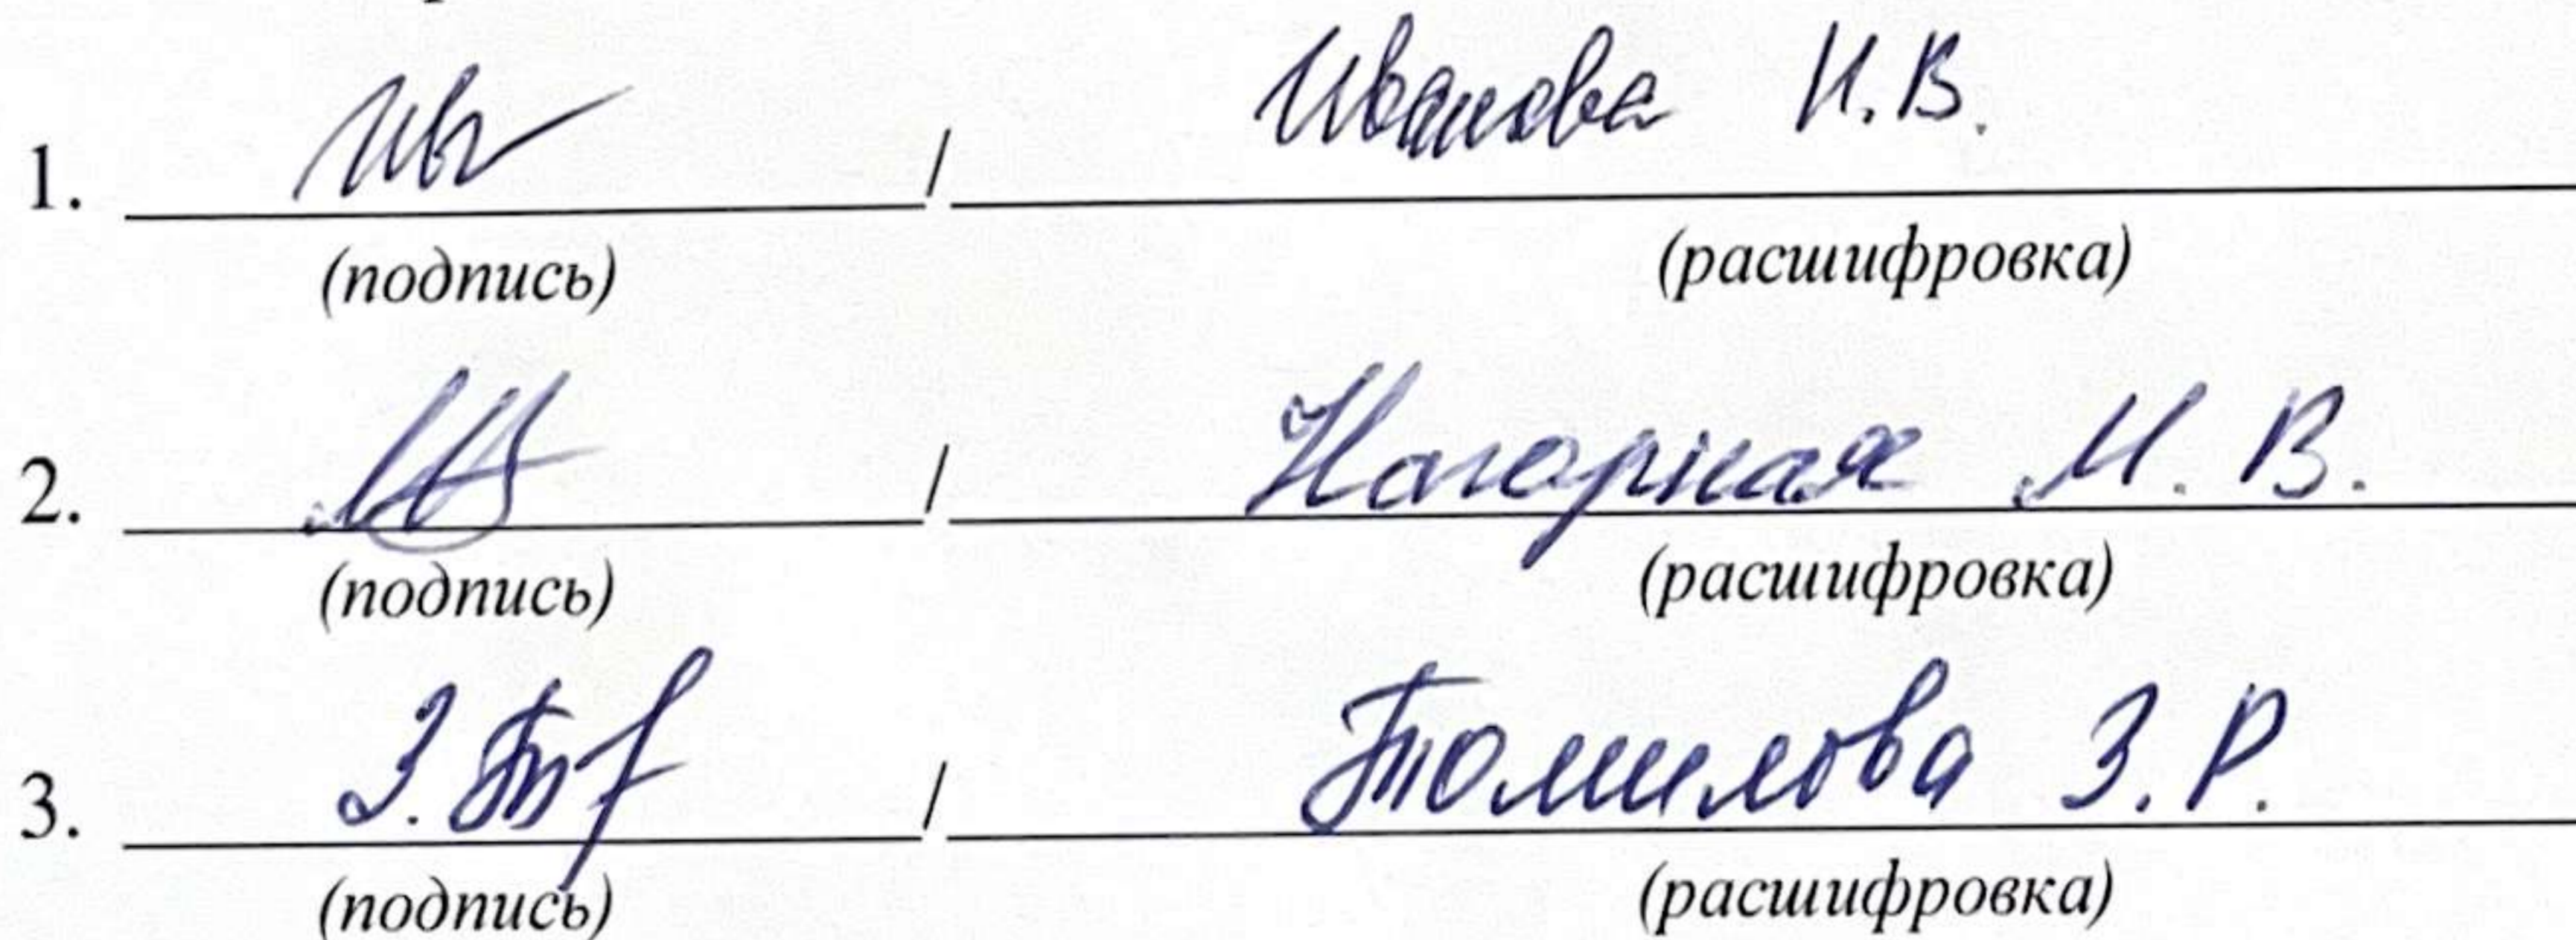 1. / Иванова И.В.
(подпись) (расшифровка)
2. / Нагорная М. В.
(подпись) (расшифровка)
3. / Томилова З. Р.
(подпись) (расшифровка)